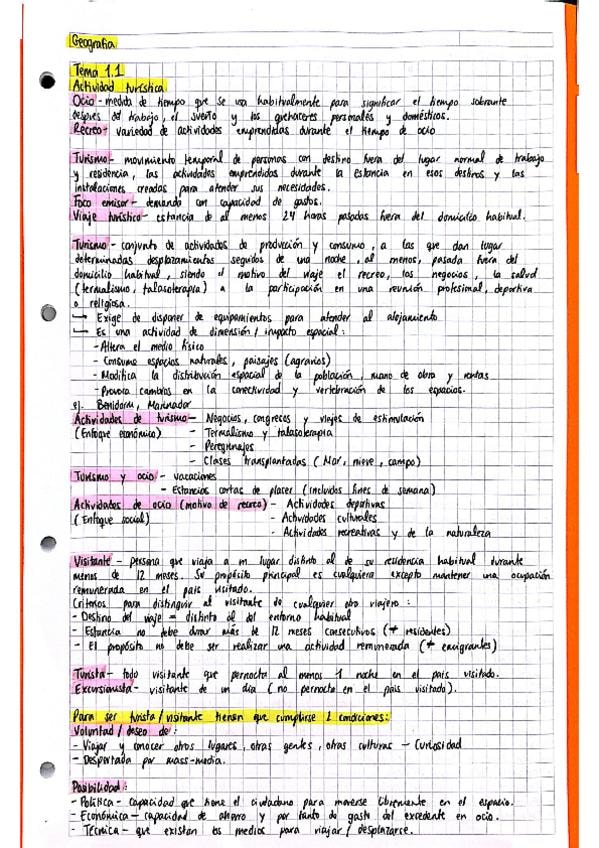 Geografia
Tema 1.1
Actividad turística
Ocio - medida de tiempo que se usa habitualmente para significar el tiempo sobrante
despues del trabajo, el sueño y los quehaceres personales y domésticos.
Recreo - variedad de actividades emprendidas durante el tiempo de ocio
Turismo - movimiento temporal de personas con destino fuera del lugar normal de trabajo
y residencia, las actividades emprendidas durante la estancia en esos destinos y las
instalaciones creadas para atender sus necesidades.
Foco emisor - demanda con capacidad de gastos.
Viaje turístico - estancia de al menos 24 horas pasadas fuera del domicilio habitual.
Turismo - conjunto de actividades de producción y consumo, a las que dan lugar
determinadas desplazamientos seguidos de una noche, al menos, pasada fuera del
domicilio habitual, siendo el motivo del viaje el recreo, los negocios, la salud
(termalismo, talasoterapia) o la participación en una reunión profesional, deportiva
o religiosa.
↳ Exige de disponer de equipamientos para atender al alojamiento
↳ Es una actividad de dimensión / impacto espacial:
- Altera el medio físico
- Consume espacios naturales, paisajes (agrarios)
- Modifica la distribución espacial de la población, mano de obra y rentas
- Provoca cambios en la conectividad y vertebración de los espacios.
ej. Benidorm, Marinador
Actividades de turismo - Negocios, congresos y viajes de estimulación
(Enfoque económico) - Termalismo y talasoterapia
- Peregrinajes
- Clases transplantadas (Mar, nieve, campo)
Turismo y ocio - vacaciones
- Estancias cortas de placer (incluidos fines de semana)
Actividades de ocio (motivo de recreo) - Actividades deportivas
(Enfoque social) - Actividades culturales
- Actividades recreativas y de la naturaleza
Visitante - persona que viaja a un lugar distinto al de su residencia habitual durante
menos de 12 meses. Su propósito principal es cualquiera excepto mantener una ocupación
remunerada en el país visitado.
Criterios para distinguir al visitante de cualquier otro viajero:
- Destino del viaje = distinto al del entorno habitual
- Estancia no debe durar más de 12 meses consecutivos (≠ residentes)
- El propósito no debe ser realizar una actividad remunerada (≠ emigrantes)
Turista - todo visitante que pernocta al menos 1 noche en el país visitado.
Excursionista - visitante de un día (no pernocta en el país visitado).
Para ser turista / visitante tienen que cumplirse 2 condiciones:
Voluntad / deseo de:
- Viajar y conocer otros lugares, otras gentes, otras culturas - Curiosidad
- Despertada por mass-media.
Posibilidad:
- Política - capacidad que tiene el ciudadano para moverse libremente en el espacio.
- Económica - capacidad de ahorro y por tanto de gasto del excedente en ocio.
- Técnica - que existan los medios para viajar / desplazarse.